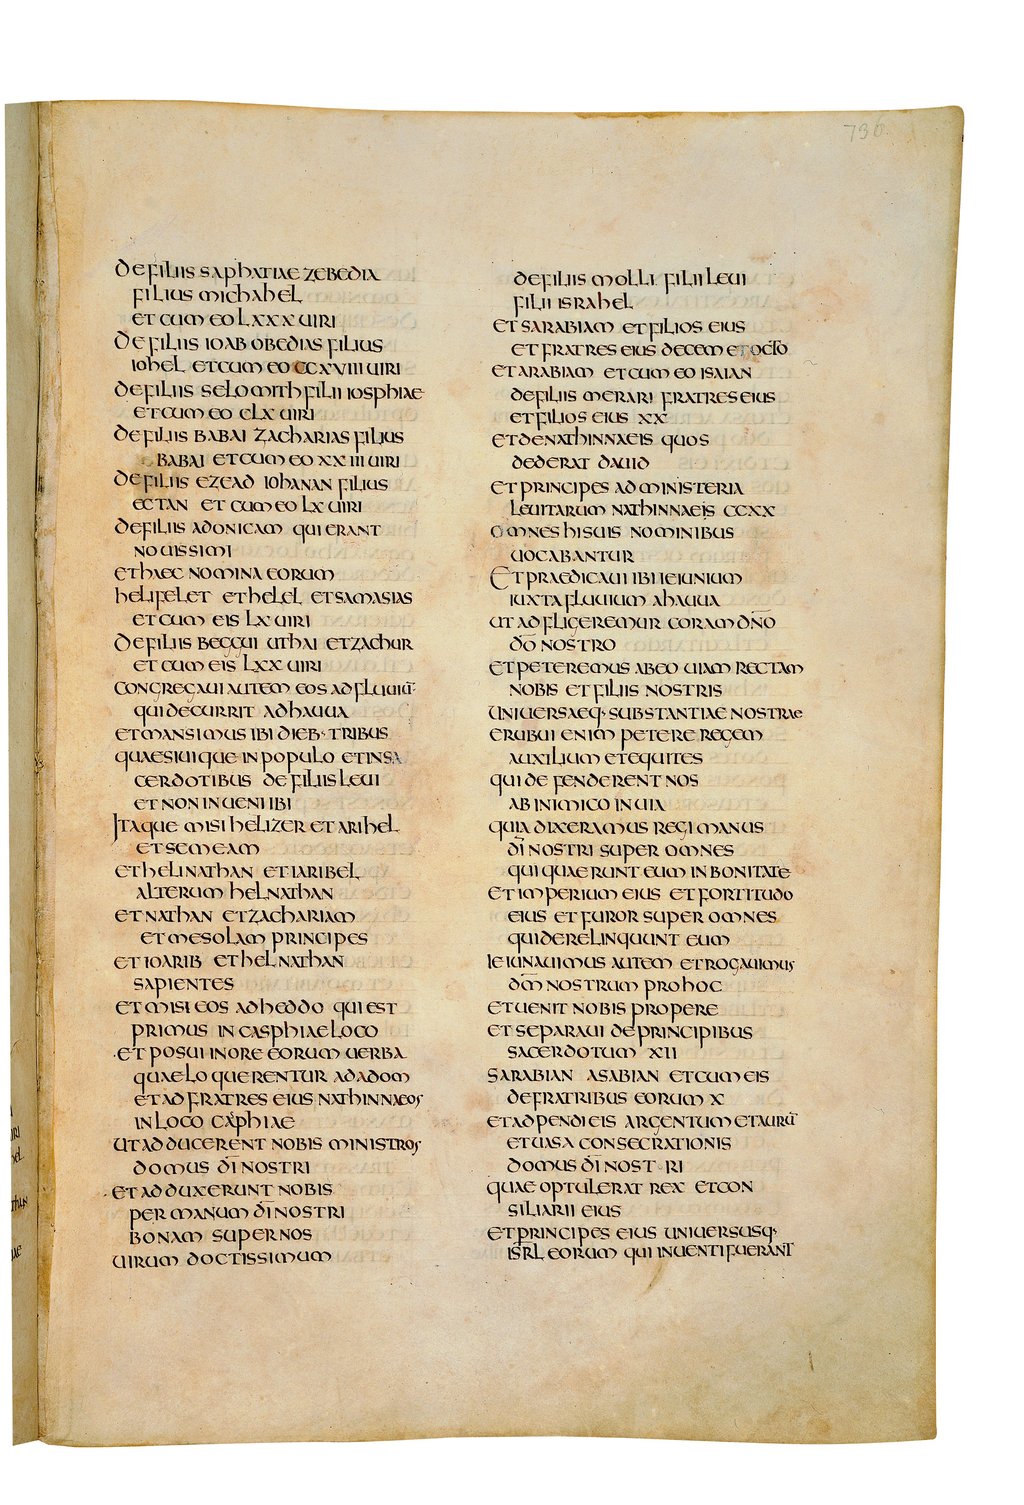 736
de filiis saphatiae zebedia
filius michahel
et cum eo lxxx uiri
de filiis ioab obedias filius
iohel et cum eo ccxviii uiri
de filiis selomith filii iosphiae
et cum eo clx uiri
de filiis babai zacharias filius
babai et cum eo xxiii uiri
de filiis ezead iohanan filius
ectan et cum eo lx uiri
de filiis adonicam qui erant
nouissimi
et haec nomina eorum
helifelet et helel et samasias
et cum eis lx uiri
de filiis beggui uthai et zachur
et cum eis lxx uiri
congregaui autem eos ad fluuiū
qui decurrit ad haua
et mansimus ibi dieb· tribus
quaesiuique in populo et in sa
cerdotibus de filiis leui
et non inueni ibi
Itaque misi helizer et arihel
et semeam
et helinathan et iaribel
alterum helnathan
et nathan et zachariam
et mesolam principes
et ioarib et helnathan
sapientes
et misi eos ad heddo qui est
primus in casphiae loco
·et posui in ore eorum uerba
quae loquerentur ad adom
et ad fratres eius nathinnaeos
in loco caphiae
ut adducerent nobis ministros
domus dī nostri
·et adduxerunt nobis
per manum dī nostri
bonam super nos
uirum doctissimum
de filiis moli filii leui
filii israhel
et sarabiam et filios eius
et fratres eius decem et octo
et arabiam et cum eo isaian
de filiis merari fratres eius
et filios eius xx
et de nathinnaeis quos
dederat dauid
et principes ad ministeria
leuitarum nathinnaeis ccxx
omnes hi suis nominibus
uocabantur
Et praedicaui ibi ieiunium
iuxta fluuium ahaua
ut adfligeremur coram dn̄o
dō nostro
et peteremus ab eo uiam rectam
nobis et filiis nostris
uniuersaeq· substantiae nostrae
erubui enim petere regem
auxilium et equites
qui defenderent nos
ab inimico in uia
quia dixeramus regi manus
dī nostri super omnes
qui quaerunt eum in bonitate
et imperium eius et fortitudo
eius et furor super omnes
qui derelinquunt eum
ieiunauimus autem et rogauimus
dm̄ nostrum pro hoc
et uenit nobis propere
et separaui de principibus
sacerdotum xii
sarabian asabian et cum eis
de fratribus eorum x
et adpendi eis argentum et aurū
et uasa consecrationis
domus dī nostri
quae optulerat rex et con
siliarii eius
et principes eius uniuersusq·
isrl̄ eorum qui inuenti fuerant